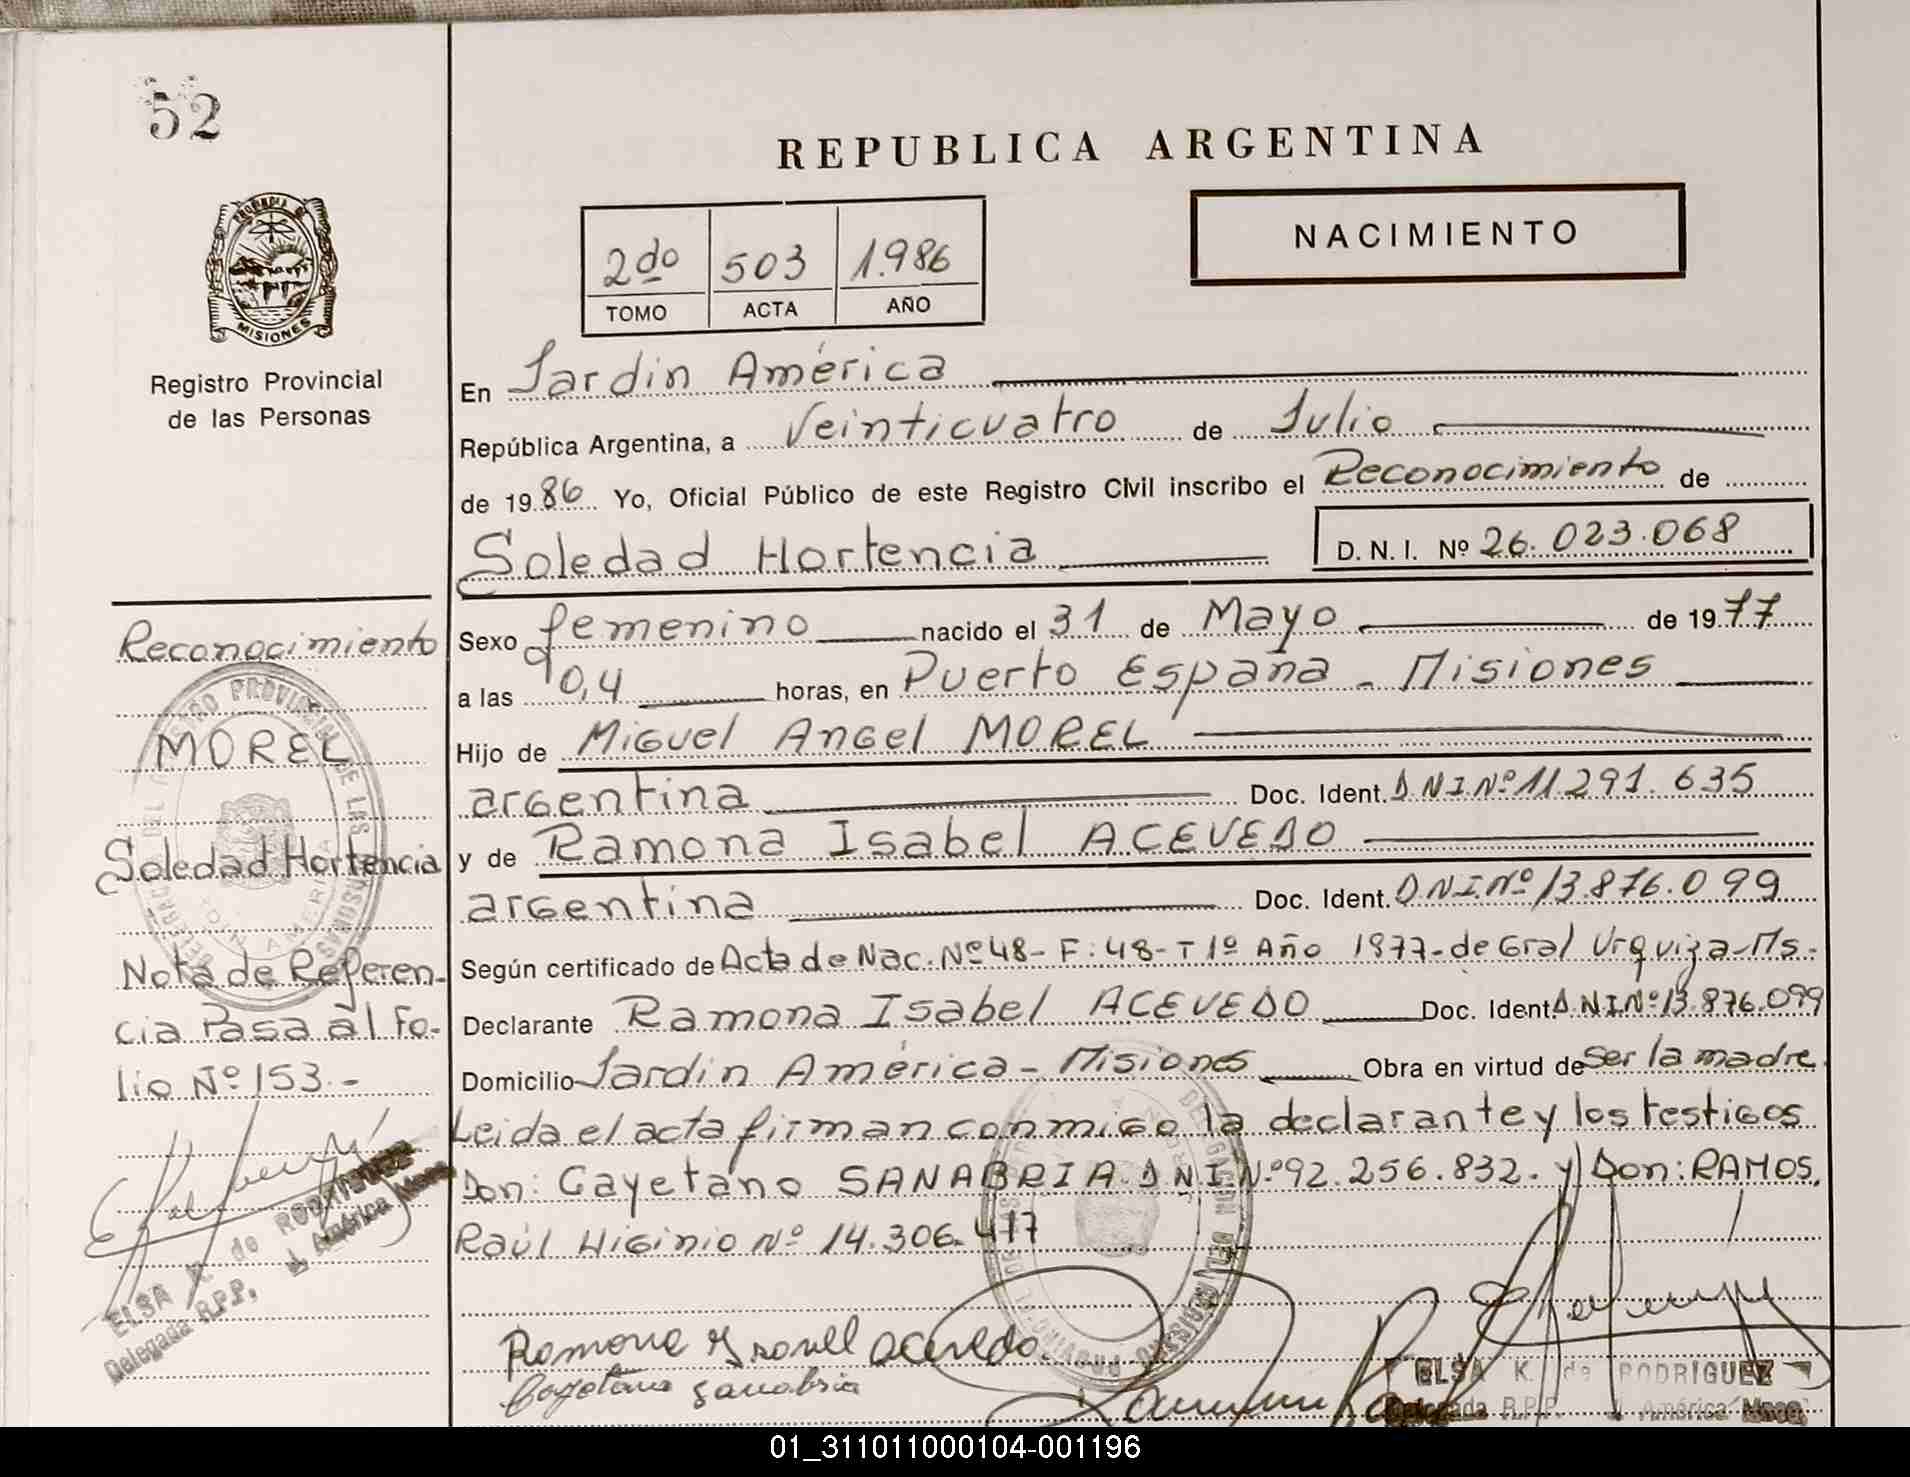 52
REPUBLICA ARGENTINA
NACIMIENTO
2do 503 1.986
TOMO ACTA AÑO
PROVINCIA DE MISIONES
Registro Provincial
de las Personas
En Jardin América
República Argentina, a Veinticuatro de Julio
de 19 86 Yo, Oficial Público de este Registro Civil inscribo el Reconocimiento de
Soledad Hortencia D. N. I. Nº 26.023.068
Sexo femenino nacido el 31 de Mayo de 19 77
a las 0,4 horas, en Puerto España - Misiones
Hijo de Miguel Angel MOREL
argentina Doc. Ident. DNI Nº 11.291.635
y de Ramona Isabel ACEVEDO
argentina Doc. Ident. D.N.I. Nº 13.876.099
Según certificado de Acta de Nac. Nº 48- F: 48- T 1º Año 1977- de Gral Urquiza-Ms.
Declarante Ramona Isabel ACEVEDO Doc. Ident. DNI Nº 13.876.099
Domicilio Jardin América - Misiones Obra en virtud de ser la madre
Leida el acta firman conmigo la declarante y los testigos
Don: Cayetano SANABRIA DNI Nº 92.256.832. y Don: RAMOS,
Raúl Higinio Nº 14.306.417
Reconocimiento
MOREL
Soledad Hortencia
Nota de Referen-
cia Pasa al Fo-
lio Nº 153.-
ELSA K. de RODRIGUEZ
Delegada R.P.P. J. América Mnes.
Ramona Ysabel acevedo
Cayetano sanabria
ELSA K. de RODRIGUEZ
Delegada R.P.P. J. América Mnes.
01_311011000104-001196